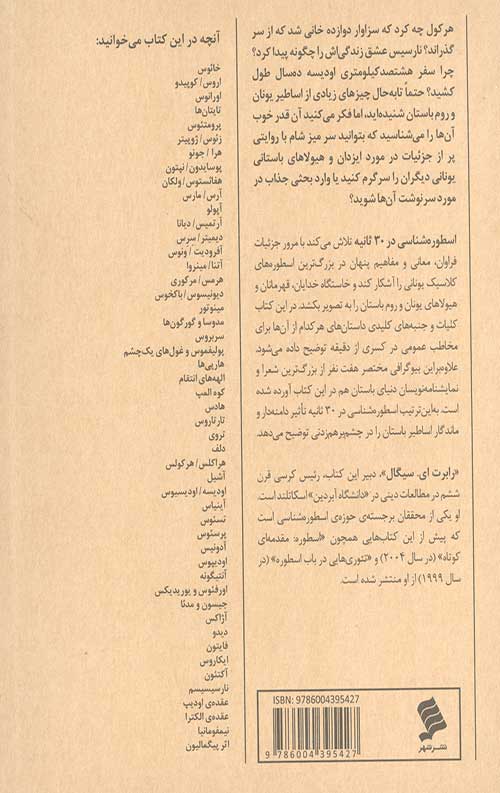 هرکول چه کرد که سزاوار دوازده خانی شد که از سر
گذراند؟ نارسیس عشق زندگی‌اش را چگونه پیدا کرد؟
چرا سفر هشتصدکیلومتری اودیسه ده‌سال طول
کشید؟ حتماً تابه‌حال چیزهای زیادی از اساطیر یونان
و روم باستان شنیده‌اید، اما فکر می‌کنید آن قدر خوب
آن‌ها را می‌شناسید که بتوانید سر میز شام با روایتی
پر از جزئیات در مورد ایزدان و هیولاهای باستانی
یونانی دیگران را سرگرم کنید یا وارد بحثی جذاب در
مورد سرنوشت آن‌ها شوید؟
اسطوره‌شناسی در ۳۰ ثانیه تلاش می‌کند با مرور جزئیات
فراوان، معانی و مفاهیم پنهان در بزرگ‌ترین اسطوره‌های
کلاسیک یونانی را آشکار کند و خاستگاه خدایان، قهرمانان و
هیولاهای یونان و روم باستان را به تصویر بکشد. در این کتاب
کلیات و جنبه‌های کلیدی داستان‌های هرکدام از آن‌ها برای
مخاطب عمومی در کسری از دقیقه توضیح داده می‌شود.
علاوه‌براین بیوگرافی مختصر هفت نفر از بزرگ‌ترین شعرا و
نمایشنامه‌نویسان دنیای باستان هم در این کتاب آورده شده
است. به‌این‌ترتیب اسطوره‌شناسی در ۳۰ ثانیه تأثیر دامنه‌دار و
ماندگار اساطیر باستان را در چشم‌برهم‌زدنی توضیح می‌دهد.
«رابرت ای. سیگال»، دبیر این کتاب، رئیس کرسی قرن
ششم در مطالعات دینی در «دانشگاه آبردین» اسکاتلند است.
او یکی از محققان برجسته‌ی حوزه‌ی اسطوره‌شناسی است
که پیش از این کتاب‌هایی همچون «اسطوره: مقدمه‌ای
کوتاه» (در سال ۲۰۰۴) و «تئوری‌هایی در باب اسطوره» (در
سال ۱۹۹۹) از او منتشر شده است.
آنچه در این کتاب می‌خوانید:
خائوس
اروس/ کوپیدو
اورانوس
تایتان‌ها
پرومتئوس
زئوس/ ژوپیتر
هرا/ جونو
پوسایدون/ نپتون
هفائستوس/ ولکان
آرس/ مارس
آپولو
آرتمیس/ دیانا
دیمیتر/ سرس
آفرودیت/ ونوس
آتنا/ مینروا
هرمس/ مرکوری
دیونیسوس/ باکخوس
مینوتور
مدوسا و گورگون‌ها
سربروس
پولیفموس و غول‌های یک‌چشم
هارپی‌ها
الهه‌های انتقام
کوه المپ
هادس
تارتاروس
تروی
دلف
هراکلس/ هرکولس
آشیل
اودیسه/ اودیسیوس
آینیاس
تسئوس
پرسئوس
آدونیس
اودیپوس
آنتیگونه
اورفئوس و یوریدیکس
جیسون و مدئا
آژاکس
دیدو
فایتون
ایکاروس
آکتئون
نارسیسیسم
عقده‌ی اودیپ
عقده‌ی الکترا
نیمفومانیا
اثر پیگمالیون
ISBN: 9786004395427
9 786004 395427
نشر شهر